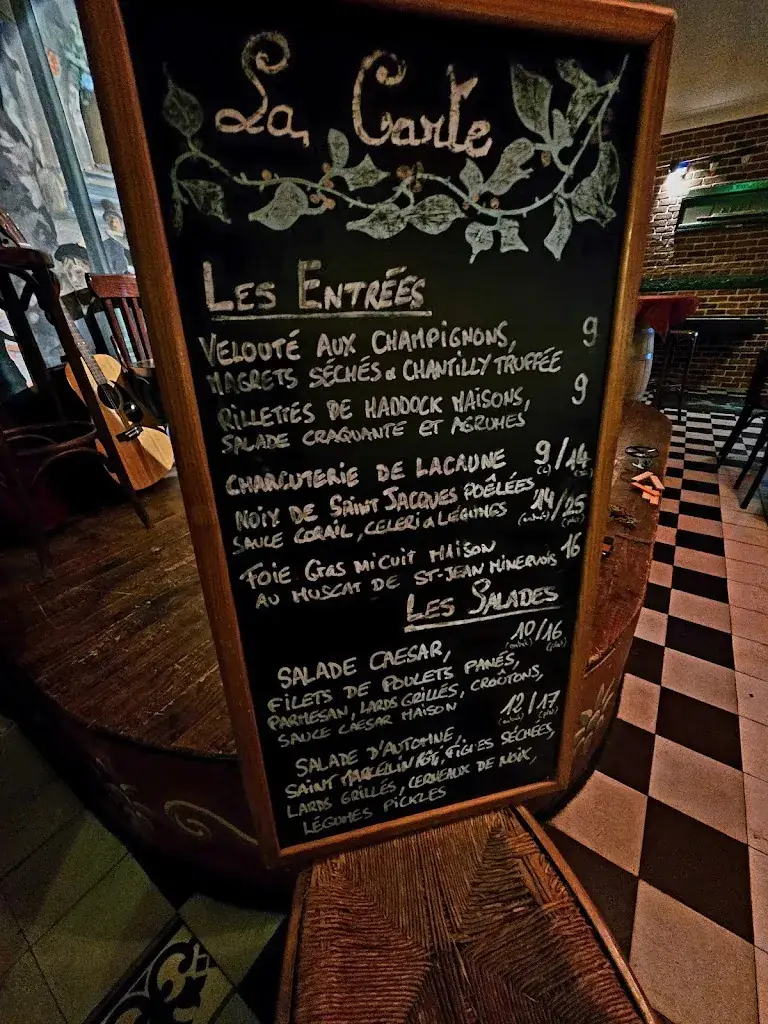 La Carte
LES ENTRÉES
VELOUTÉ AUX CHAMPIGNONS, 9
MAGRETS SÉCHÉS & CHANTILLY TRUFFÉE
RILLETTES DE HADDOCK MAISONS, 9
SALADE CRAQUANTE ET AGRUMES
CHARCUTERIE DE LACAUNE 9/14
NOIX DE SAINT JACQUES POÊLÉES 14/25
SAUCE CORAIL, CELERI & LÉGUMES (entrée) (plat)
FOIE GRAS MICUIT MAISON 16
AU MUSCAT DE ST-JEAN MINERVOIS
LES SALADES
SALADE CAESAR, 10/16
FILETS DE POULETS PANÉS, (entrée) (plat)
PARMESAN, LARDS GRILLÉS, CROÛTONS,
SAUCE CAESAR MAISON 12/17
SALADE D'AUTOMNE, (entrée) (plat)
SAINT MARCELIN RÔTI, FIGUES SÉCHÉES,
LARDS GRILLÉS, CERNEAUX DE NOIX,
LÉGUMES PICKLES